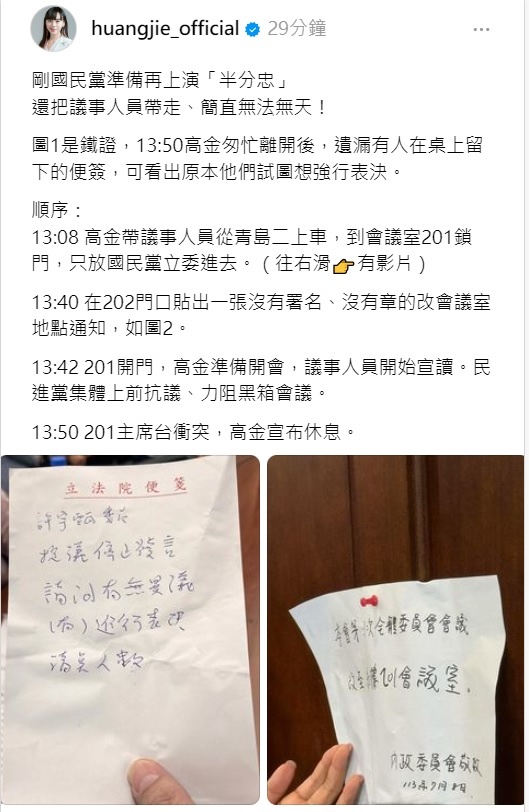 huangjie_official 29分鐘
剛國民黨準備再上演「半分忠」
還把議事人員帶走、簡直無法無天！
圖1是鐵證，13:50高金匆忙離開後，遺漏有人在桌上留
下的便簽，可看出原本他們試圖想強行表決。
順序：
13:08 高金帶議事人員從青島二上車，到會議室201鎖
門，只放國民黨立委進去。（往右滑👉有影片）
13:40 在202門口貼出一張沒有署名、沒有章的改會議室
地點通知，如圖2。
13:42 201開門，高金準備開會，議事人員開始宣讀。民
進黨集體上前抗議、力阻黑箱會議。
13:50 201主席台衝突，高金宣布休息。
立法院便箋
許宇甄委員
提議停止發言
請問有無異議
(有)進行表決
清點人數
本會第 次全體委員會會議
改至 201會議室。
內政委員會敬啟
113年 月 日